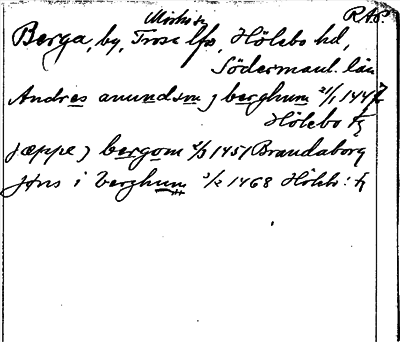 RAp.
Berga, by, Trosa lfs, Hölebo hd,
Södermanl. län
Andres anundson j berghum 21/1 1447
Hölebo tg
Jæppe j bergom 4/3 1451 Brandaborg
Jøns i berghum 3/2 1468 Höleb: tg